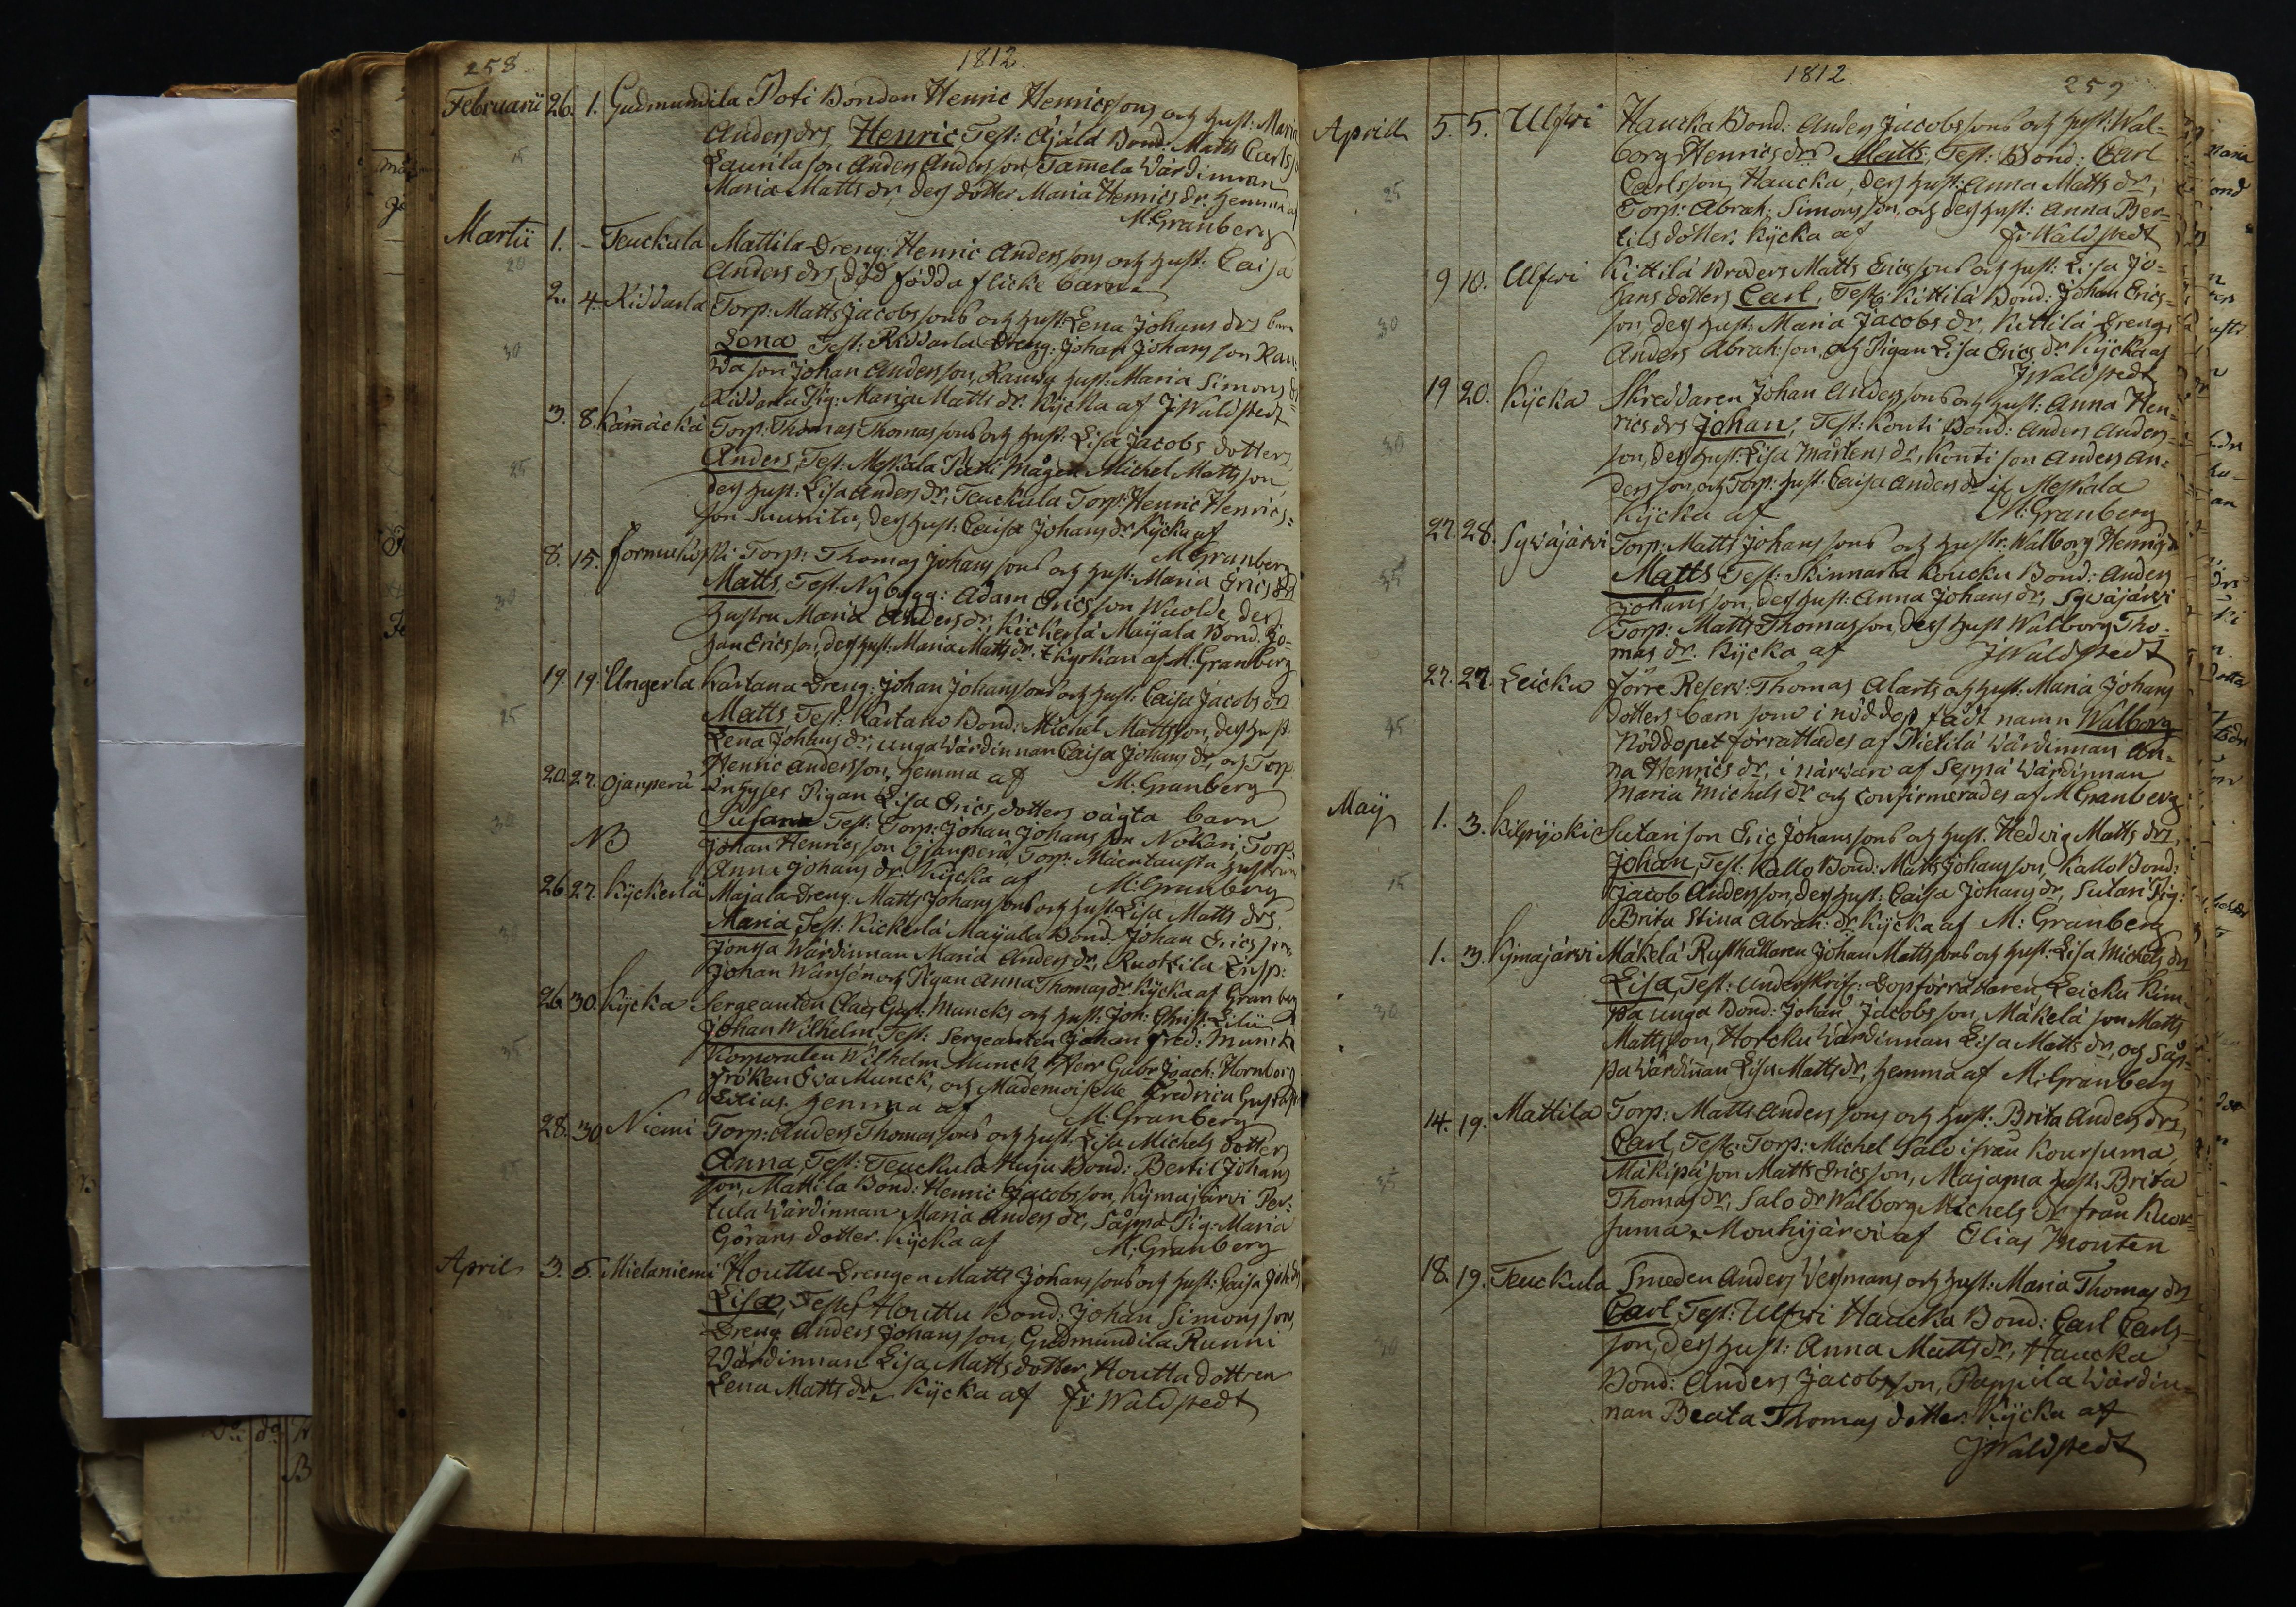 258.
1812.
Februarii 26. 1. Gudmundila Poti Bonden Henric Henricssons och hust: Maria
Anders drs, Henric, Test: Äjälä Bond: Matts Carlss
15 Laurila son Anders Andersson, Tam̄ela Wärdinnan
Maria Matts dr, dess dotter Maria Henrics dr. hemma af
M: Granberg
Martii 1. – Teuckula Mattila Dreng: Henric Anderssons och hust: Caisa
20 Anders drs död födda flicke barn
2. 4. Kiddarla Torp: Matts Jacobssons och hust: Lena Johans drs barn
30 Lena Test: Kiddarla Dreng: Johan Johansson
son Johan Andersson, hust: Maria Simons
Kiddarla Pig: Maria Matts dr. Kÿcka af J Waldstedt
3. 8. Käm̄äckä Torp: Thomas Thomassons och hust: Lisa Jacobs dotters
25 Anders, Test: Meskala Pätti mågen Michel Mattsson
dess hust: Lisa Anders dr, Teuckula Torp: Henric Henrics=
son Suunitu, dess hust: Caisa Johans dr Kÿcka af
M Granberg
8. 15. Jormukoski Torp: Thomas Johanssons och hust: Maria Erics drs
30 Matts, Test: Nybygg: Adam Ericsson Wuolde, dess
hustru Maria Anders dr, Kickerlä Maijala Bond. Jo=
han Ericsson, dess hust: Maria Matts dr. i kyrkan af M: Granberg
19. 19. Ungerla Kartana Dreng: Johan Johanssons och hust: Caisa Jacobs drs
25 Matts Test: Kartano Bond: Michel Mattsson, dess hust:
Lena Johans dr, unga Wärdinnan Caisa Johans dr, och Torp:
Henric Andersson, hemma af M: Granberg
20. 27. Ojanperä Inhyses Pigan Lisa Erics dotters oägta barn
30 Susana Test: Torp: Johan Johansson Nokari, Torp:
NB Johan Henricsson Ojanperä, Torp: hustrun
Anna Johans dr Kÿcka af M: Granberg
26. 27. Kÿckerlä Majala Dreng: Matts Johanssons och hust: Lisa Matts drs,
30 Maria Test: Kickerlä Maijala Bond. Johan Ericsson
Jonsa Wärdinnan Maria Anders dr, Ruottila Insp:
Johan Wansén och Pigan Anna Thomas dr Kÿcka af Granberg
26 30. Kÿcka Sergeanten Claes Gust: Muncks och hust: Joh: Christ: Lilii
35 Johan Wilhelm, Test: Sergeanten Johan Fred: Munck
Komoralen Wilhelm Munck, Herr Gabr: Joach: Hornborg
fröken Eva Munck, och Mademoiselle Fredrica Gust
Lilius. hemma af M: Granberg
28. 30 Niemi Torp: Anders Thomassons och hust: Lisa Michels dotters
Anna, Test: Teuckula Huju Bond: Bertil Johans
son, Mattila Bond: Henric Jacobsson, Kÿmajärvi Per:
tula Wärdinnan Maria Anders dr, Såppa Pig: Maria
Görans dotter. Kÿcka af M: Granberg
April 3. 5. Mietaniemi Houttu Drengen Matts Johanssons och hust: Caisa Joh: drs
Lisa, Test: Houttu Bond: Johan Simonsson,
Dreng Anders Johansson, Gudmundila Runni
Wärdinnan Lisa Matts dotter, Houttu dottren
Lena Matts dr. Kÿcka af Jr Waldstedt
1812.
259
Aprill 5. 5. Ulfwi Haucka Bond: Anders Jacobssons och hust: Wal=
borg Henrics drs Matts, Test: Bond: Carl
25 Carlsson, Haucka, dess hust: Anna Matts dr,
Torp: Abrah: Simonsson, och dess hust: Anna Ber=
tils dotter. Kÿcka af Jr Waldstedt
9 10. Ulfwi Kittilä Broders Matts Ericssons och hust: Lisa Jo=
30 hans dotters Carl, Test: Kittilä Bond: Johan Erics=
son, dess hust: Maria Jacobs dr, Kittilä Dreng:
Anders Abrah:son, och Pigan Lisa Erics dr Kÿcka af
J Waldstedt
19 20. Kÿcka Skreddaren Johan Anderssons och hust: Anna Hen=
30 rics drs Johan, Test: Konti Bond: Anders Anders=
son, dess hust: Lisa Mårtens dr, Konti son Anders An=
dersson, och Torp: hust: Caisa Anders dr if Meskala
Kÿcka af M: Granberg
27. 28. Sÿwäjärvi Torp: Matts Johanssons och hustr: Walborg Henrics d
35 Matts Test: Skinnarla Koucku Bond: Anders
Johansson, dess hust: Anna Johans dr, Sÿwäjärvi
Torp: Matts Thomasson, dess hust Walborg Tho=
mas dr. Kÿcka af J Waldstedt
27. 27. Leicku förre Reserv: Thomas Alarts och hust: Maria Johans
45 dotters barn som i nöddop fådt namn Walborg
Nöddopet förrättades af Pietilä Wärdinnan An=
na Henrics dr, i närwaro af Seppä Wärdinnan
Maria Michels dr och confirmerades af M Granberg
Maÿ 1. 3. Kilpijoki Sutari son Eric Johanssons och hust. Hedvig Matts drs,
15 Johan, Test: Kallo Bond: Matts Johansson, Kallo Bond:
Jacob Andersson, dess hust: Caisa Johans dr, Sutari Pig:
Brita Stina Abrah: dr Kÿcka af M: Granberg
1. 3. Kÿmajärvi Mäkelä Rusthållaren Johan Mattssons och hust: Lisa Michels drs
30 Lisa, Test: Underskrif: Dopförrättaren, Leicku Kim=
pa unga Bond: Johan Jacobsson, Mäkelä son Matts
Mattsson, Horcku Wärdinnan Lisa Matts dr, och Såp=
pa Wärdin̄an Lisa Matts dr, hemma af M: Granberg
14. 19. Mattila Torp: Matts Anderssons och hust: Brita Anders drs,
35 Carl, Test: Torp: Michel Salo ifrån Kourjuma,
Mäkipä son Matts Ericsson, Majama hust: Brita
Thomas dr, Salo dr Walborg Michels dr från Kuor=
juma. Mouhijärvi af Elias Monten
18. 19. Teuckula Smeden Anders Wesmans och hust: Maria Thomas drs
30 Carl Test: Ulfwi Haucka Bond: Carl Carls=
son, dess hust: Anna Matts dr, Haucka
Bond: Anders Jacobsson, Pappila Wärdin=
nan Beata Thomas dotter: Kÿcka af
J Waldstedt